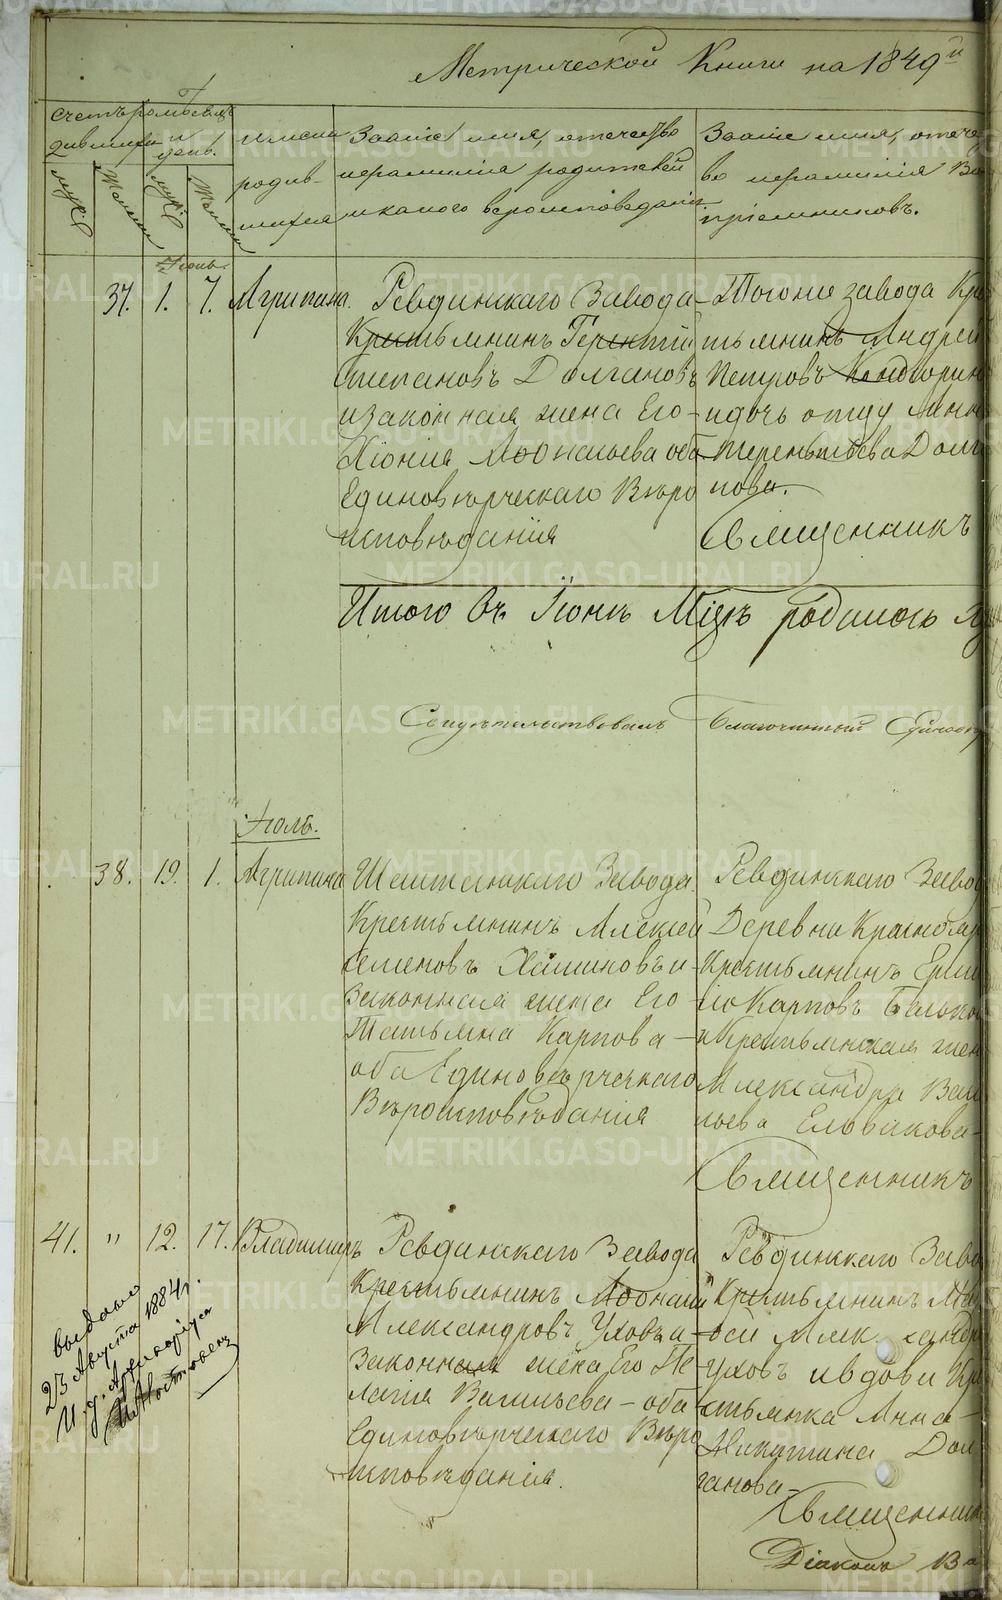 Метрической Книги на 1849й
Счетъ родив
шихся
муж:
Женск
Мѣсяцъ и
день.
муж:
Женск
имена
родив-
шихся
Званіе имя, отечество
и фамилія родителей
и какого вероисповеданія
Званіе имя, отече
во и фамилія Во
пріемниковъ.
Іюнь.
37. 1. 7. Агрипина.
Ревдинскаго Завода
Крестьянинъ Терентій
Степановъ Долгановъ
и законная жена Его
Хіонія Афонасьева оба
Единовѣрческаго Вѣро
исповѣданія
Тогоже завода Кре
стьянинъ Андрей
Петровъ
и дочь отцу Анна
Терентьева Долга
нова.
Священникъ
Итого въ Іюнѣ Мцѣ родилось
Свидѣтельствовалъ Благочинный
Іюль.
38. 19. 1. Агрипина
Шайтанскаго Завода
Крестьянинъ Алексей
Семеновъ Халиновъ и
Законная жена Его
Татьяна Карпова
оба Единовѣрческаго
Вѣроисповѣданія
Ревдинскаго Завода
Деревни Краснояр
Крестьянинъ Ерми
ло Карповъ Бельков
и Крестьянская жен
Александра Васи
льева Ельвакова
Священникъ
41. " 12. 17. Владимиръ
Ревдинскаго Завода
Крестьянинъ Афонасий
Александровъ Уховъ и
Законная жена Его Пе
лагія Васильева оба
Единовѣрческаго Вѣро
исповѣданія.
Ревдинскаго Заво
Крестьянинъ
Алек сандр
Уховъ и вдова Кре
стьянка Анна
Никитина Дол
ганова
Священник
Діаконъ Ва
Выдано
23 Августа 1884 г.
METRIKI.GASO-URAL.RU